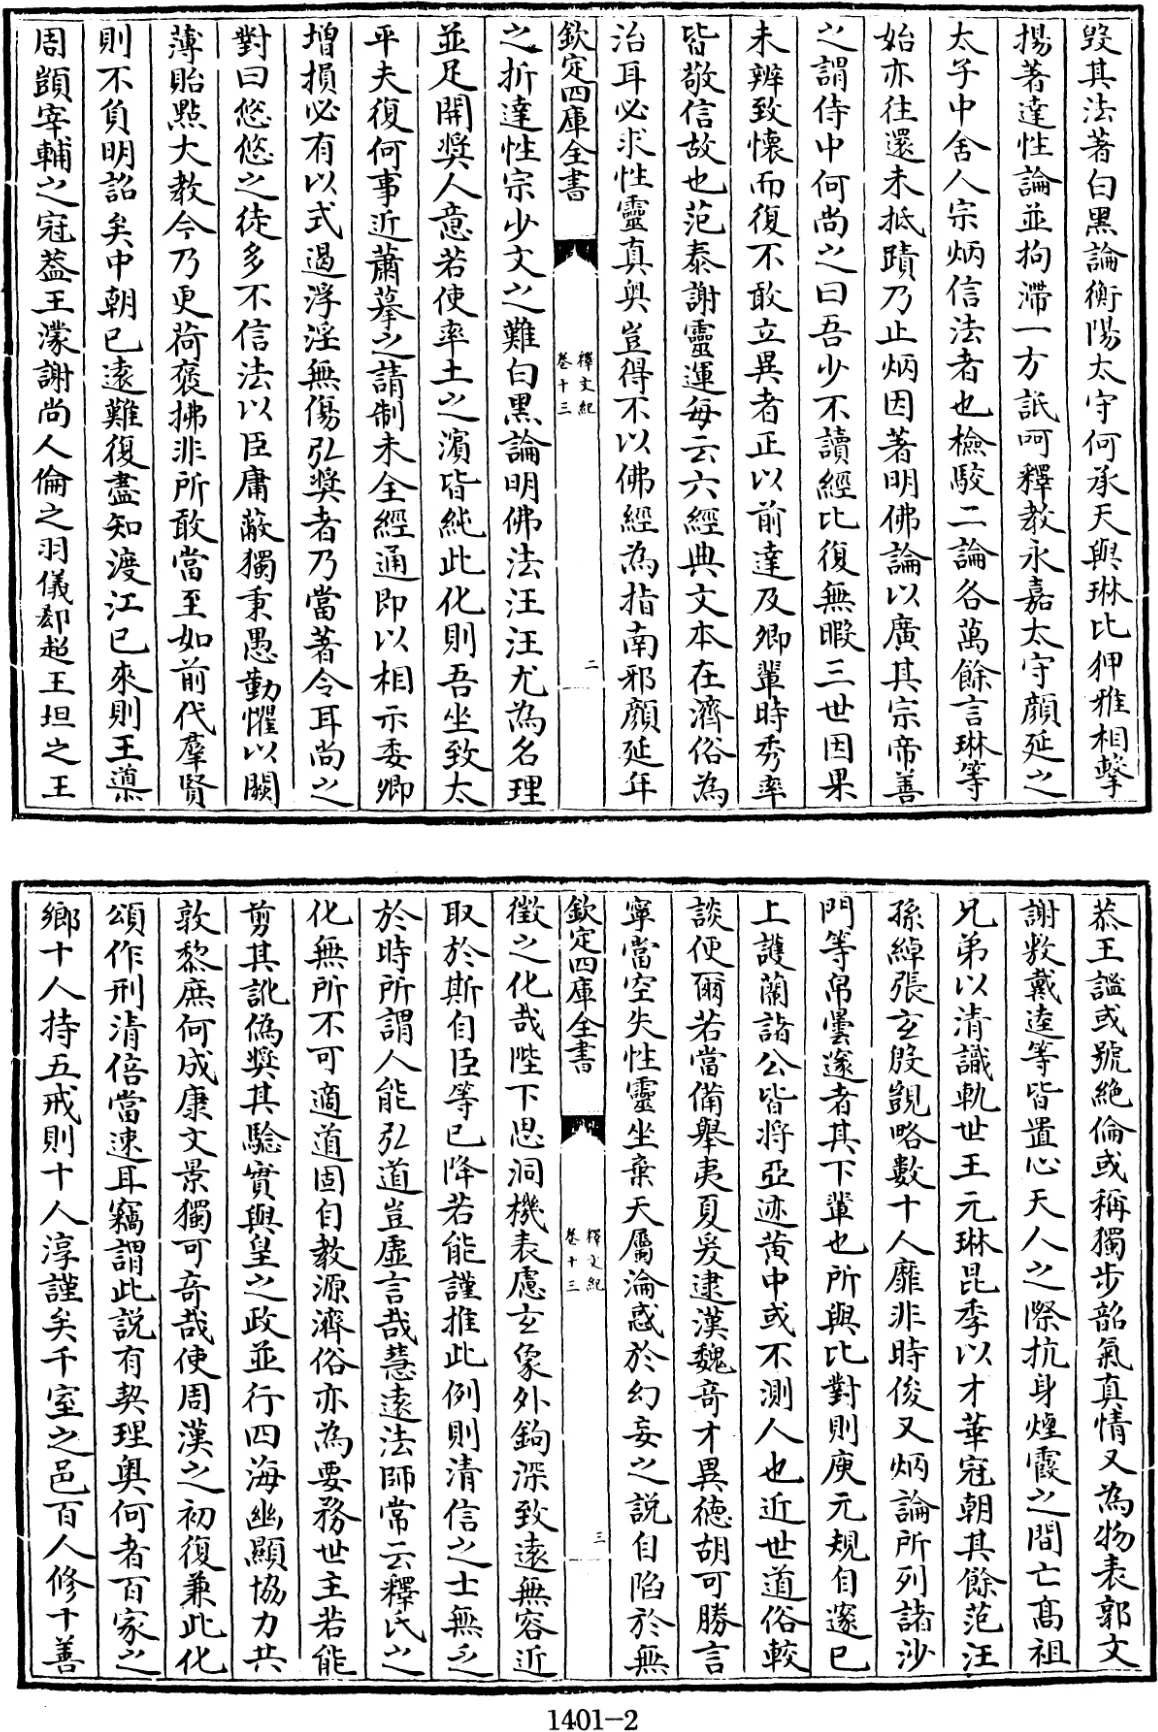 毀其法著白黑論衡陽太守何承天與琳比狎雅相擊
揚著達性論並拘滯一方詆呵釋教永嘉太守顔延之
太子中舍人宗炳信法者也檢駮二論各萬餘言琳等
始亦往還未抵蹟乃止炳因著明佛論以廣其宗帝善
之謂侍中何尚之曰吾少不讀經比復無暇三世因果
未辨致懷而復不敢立異者正以前達及卿輩時秀率
皆敬信故也范泰謝靈運每云六經典文本在濟俗為
治耳必求性靈真奥豈得不以佛經為指南邪顔延年
欽定四庫全書
釋文紀
卷十三
二
之折達性宗少文之難白黑論明佛法汪汪尤為名理
並足開奬人意若使率土之濱皆純此化則吾坐致太
平夫復何事近蕭摹之請制未全經通即以相示委卿
增損必有以式遏浮淫無傷弘奬者乃當著令耳尚之
對曰悠悠之徒多不信法以臣庸蔽獨秉愚勤懼以闕
薄貽點大教今乃更荷褒拂非所敢當至如前代羣賢
則不負明詔矣中朝已遠難復盡知渡江已來則王導
周顗宰輔之冠蓋王濛謝尚人倫之羽儀郄超王坦之王
恭王謐或號絶倫或稱獨步韶氣真情又為物表郭文
謝敷戴逵等皆置心天人之際抗身煙霞之間亡髙祖
兄弟以清識軌世王元琳昆季以才華冠朝其餘范汪
孫綽張玄殷覬略數十人靡非時俊又炳論所列諸沙
門等帛曇邃者其下輩也所與比對則庾元規自邃已
上護蘭諸公皆將亞迹黄中或不測人也近世道俗較
談便爾若當備舉夷夏爰逮漢魏竒才異德胡可勝言
寧當空失性靈坐棄天屬淪惑於幻妄之説自陷於無
欽定四庫全書
釋文紀
卷十三
三
徵之化哉陛下思洞機表慮玄象外鉤深致遠無容近
取於斯自臣等已降若能謹推此例則清信之士無乏
於時所謂人能弘道豈虚言哉慧遠法師常云釋氏之
化無所不可適道固自教源濟俗亦為要務世主若能
剪其訛偽奬其驗實與皇之政並行四海幽顯協力共
敦黎庶何成康文景獨可竒哉使周漢之初復兼此化
頌作刑清倍當速耳竊謂此説有契理奥何者百家之
鄉十人持五戒則十人淳謹矣千室之邑百人修十善
1401—2